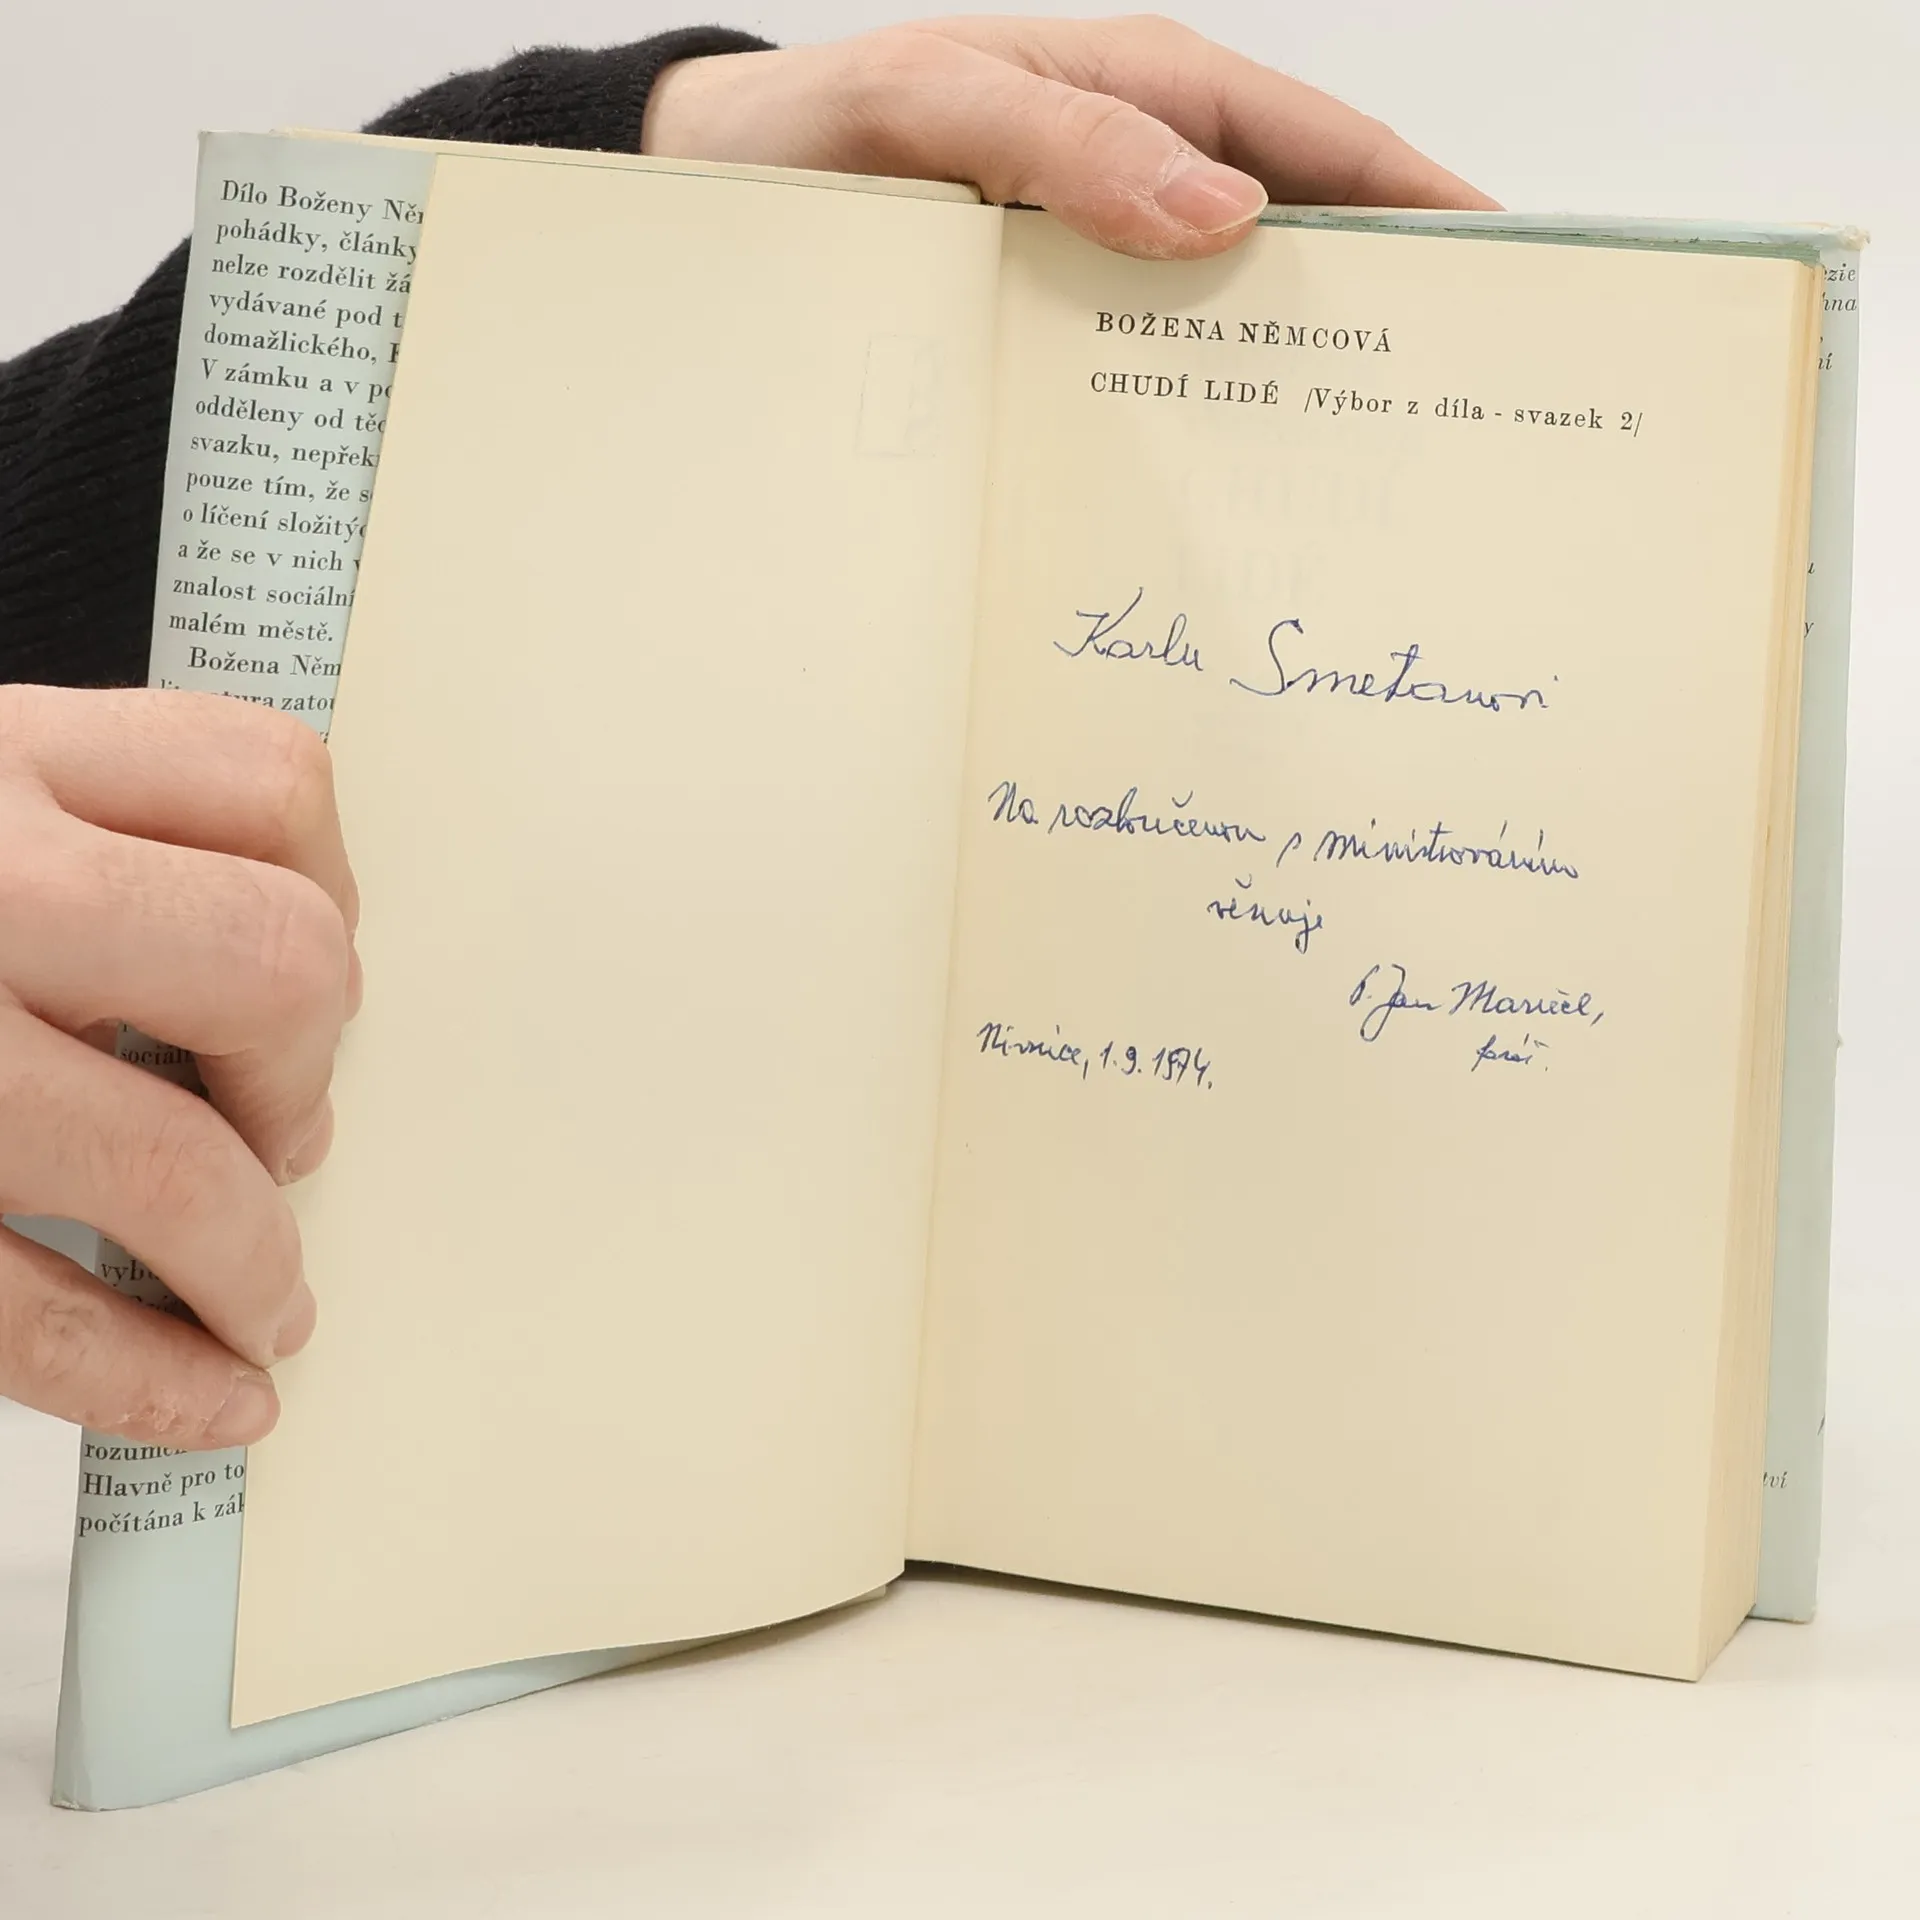 Dílo Boženy Něm
pohádky, články
nelze rozdělit
vydávané pod
domažlického,
V zámku a v
odděleny od
svazku,
pouze tím, že
o líčení
a že se v nich
znalost sociální
malém městě.
Božena Něm
zatou
sociáln
Hlavně pro to
počítána k
BOŽENA NĚMCOVÁ
CHUDÍ LIDÉ /Výbor z díla - svazek 2/
Karlu Smetanovi
Na rozloučenou s ministrováním
věnuje
P. Jan
Nivnice, 1. 9. 1974.